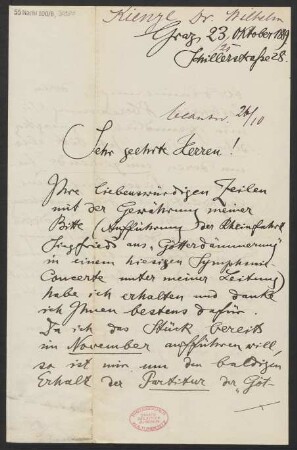 Kienzl Dr. Wilhelm
Graz, 23. Oktober 1889
Schillerstraße 28.
26/10
Sehr geehrte Herren!
Ihre liebenswürdigen Zeilen
mit der Gewährung meiner
Bitte (Aufführung der Rheinfahrt
Siegfried's aus „Götterdämmerung"
in einem hiesigen Symphonie-
Concerte unter meiner Leitung)
habe ich erhalten und danke
ich Ihnen bestens dafür.
Da ich das Stück bereits
im November aufführen will,
so ist mir um den baldigen
Erhalt der Partitur der „Göt-